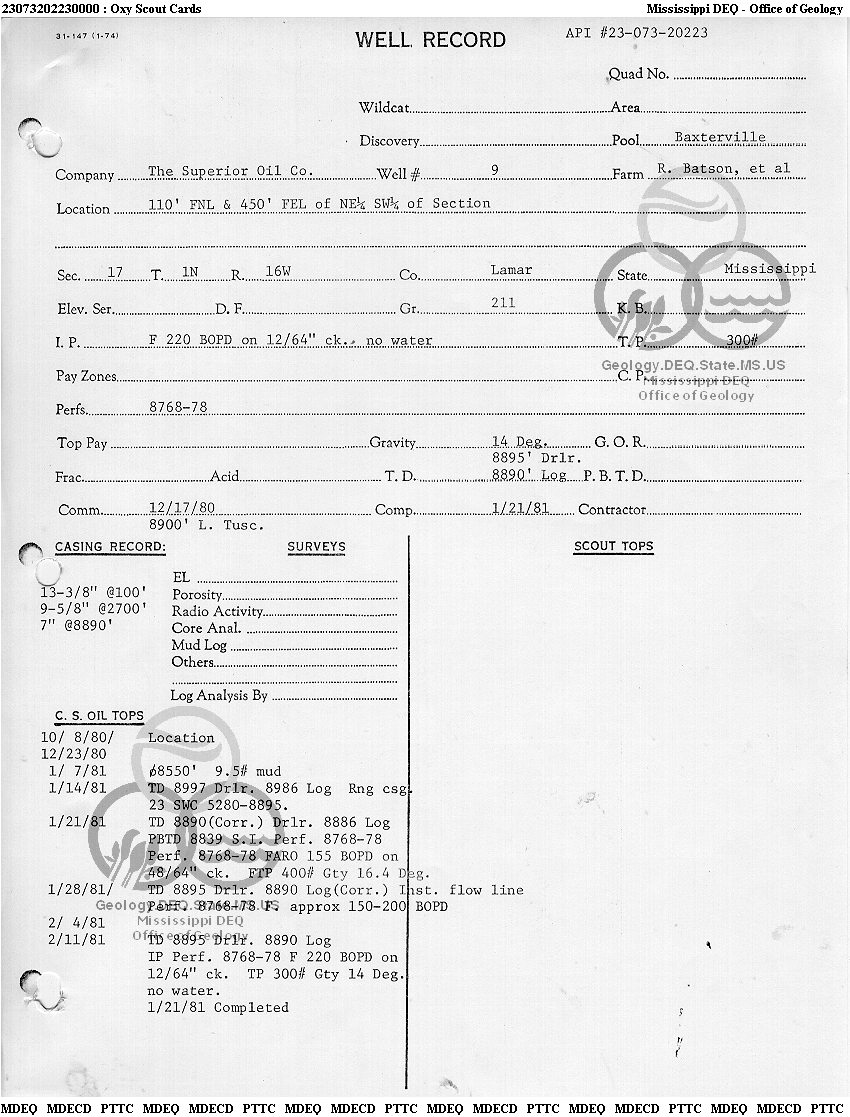 23073202230000 : Oxy Scout Cards Mississippi DEQ - Office of Geology
31-147 (1-74) WELL RECORD API #23-073-20223
Quad No.
Wildcat Area
Discovery Pool Baxterville
Company The Superior Oil Co. Well # 9 Farm R. Batson, et al
Location 110' FNL & 450' FEL of NE¼ SW¼ of Section
Sec. 17 T. 1N R. 16W Co. Lamar State Mississippi
Elev. Ser. D. F. Gr. 211 K. B.
I. P. F 220 BOPD on 12/64" ck. no water T. P. 300#
Geology.DEQ.State.MS.US
Pay Zones C. P.
Mississippi DEQ
Office of Geology
Perfs. 8768-78
Top Pay Gravity 14 Deg. G. O. R.
8895' Drlr.
Frac. Acid T. D. 8890' Log P. B. T. D.
Comm. 12/17/80 Comp. 1/21/81 Contractor
8900' L. Tusc.
CASING RECORD: SURVEYS SCOUT TOPS
EL
13-3/8" @100' Porosity
9-5/8" @2700' Radio Activity
7" @8890' Core Anal.
Mud Log
Others
Log Analysis By
C. S. OIL TOPS
10/ 8/80/ Location
12/23/80
1/ 7/81 Ø8550' 9.5# mud
1/14/81 TD 8997 Drlr. 8986 Log Rng csg.
23 SWC 5280-8895.
1/21/81 TD 8890(Corr.) Drlr. 8886 Log
PBTD 8839 S.I. Perf. 8768-78
Perf. 8768-78 FARO 155 BOPD on
48/64" ck. FTP 400# Gty 16.4 Deg.
1/28/81/ TD 8895 Drlr. 8890 Log(Corr.) Inst. flow line
Geology.DEQ.State.MS.US
Perf. 8768-78 F. approx 150-200 BOPD
2/ 4/81
Mississippi DEQ
Office of Geology
2/11/81 TD 8895 Drlr. 8890 Log
IP Perf. 8768-78 F 220 BOPD on
12/64" ck. TP 300# Gty 14 Deg.
no water.
1/21/81 Completed
MDEQ MDECD PTTC MDEQ MDECD PTTC MDEQ MDECD PTTC MDEQ MDECD PTTC MDEQ MDECD PTTC MDEQ MDECD PTTC